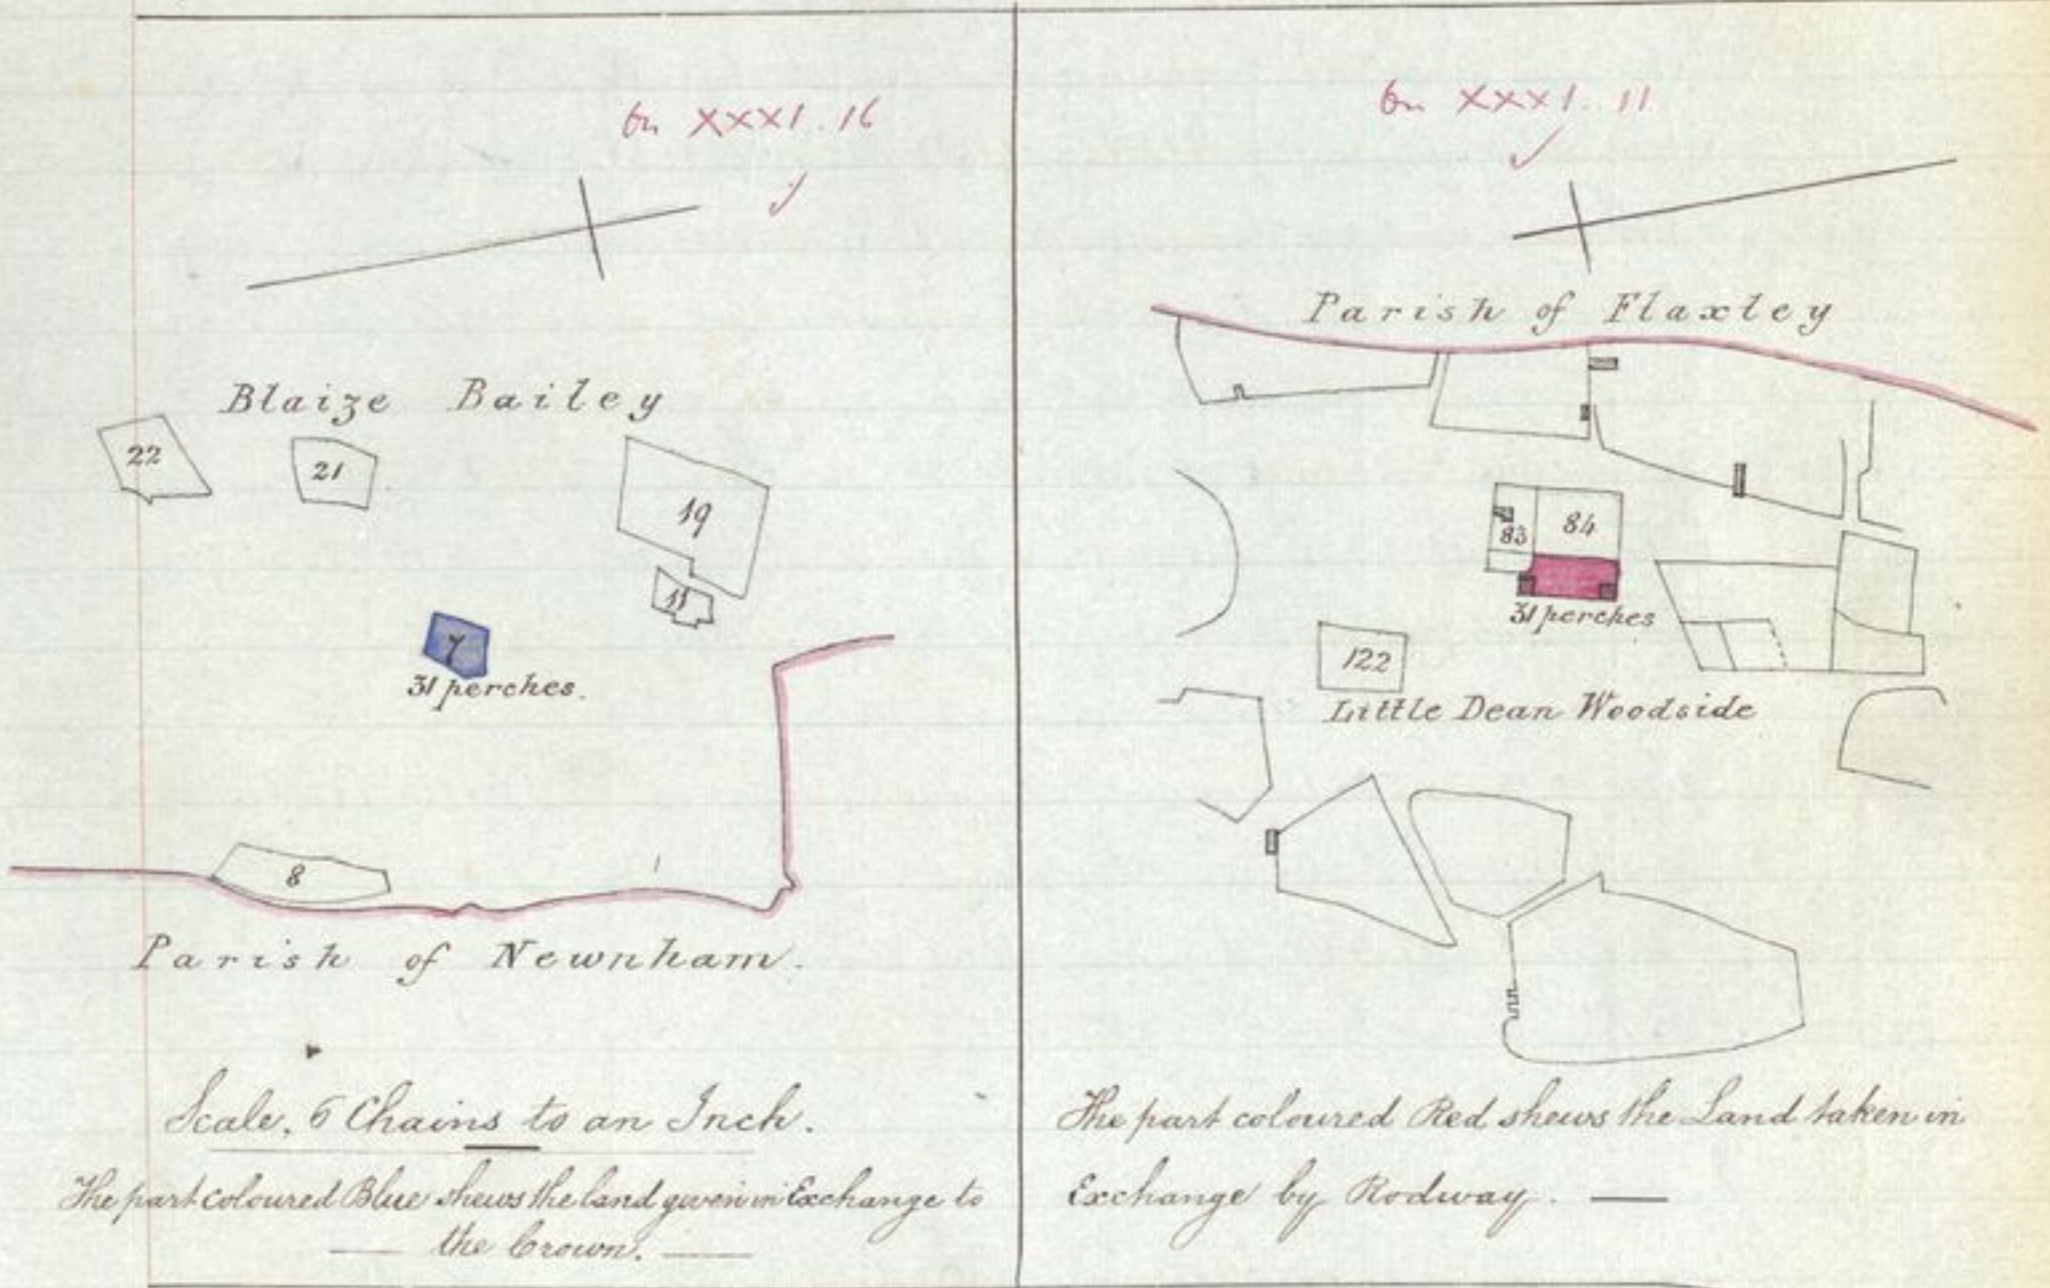 On XXXI. 16
Blaize Bailey
22
21
19
11
7
31 perches.
8
Parish of Newnham.
Scale. 6 Chains to an Inch.
The part coloured Blue shews the land given in Exchange to
the Crown.
On XXXI. 11
Parish of Flaxley
83
84
31 perches
122
Little Dean Woodside
The part coloured Red shews the Land taken in
Exchange by Rodway.